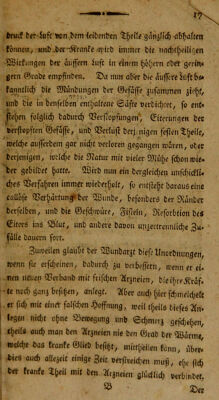 17
druck der Luft von dem leidenden Theile gänzlich abhalten
können, und der Kranke wird immer die nachtheiligen
Wirkungen der äussern Luft in einem höhern oder gerin-
gern Grade empfinden. Da nun aber die äussere Luft be-
kanntlich die Mündungen der Gefässe zusammen zieht,
und die in denselben enthaltene Säfte verdichtet, so ent-
stehen folglich dadurch Verstopfungen, Eiterungen der
verstopften Gefässe, und Verlust derjenigen festen Theile,
welche ausserdem gar nicht verloren gegangen wären, oder
derjenigen, welche die Natur mit vieler Mühe schon wie-
der gebildet hatte. Wird nun ein dergleichen unschickli-
ches Verfahren immer wiederholt, so entsteht daraus eine
callöse Verhärtung der Wunde, besonders der Ränder
derselben, und die Geschwüre, Fisteln, Resorbtion des
Eiters ins Blut, und andere davon unzertrennliche Zu-
fälle dauern fort.
Zuweilen glaubt der Wundarzt diese Unordnungen,
wenn sie erscheinen, dadurch zu verbessern, wenn er ei-
nen neuen Verband mit frischen Arzneien, die ihre Kräf-
te noch ganz besitzen, anlegt. Aber auch hier schmeichelt
er sich mit einer falschen Hoffnung, weil theils dieses An-
legen nicht ohne Bewegung und Schmerz geschehen,
theils auch man den Arzneien nie den Grad der Wärme,
welche das kranke Glied besitzt, mittheilen kann, über-
dies auch allezeit einige Zeit verstreichen muß, ehe sich
der kranke Theil mit den Arzneien glücklich verbindet.
B
Der